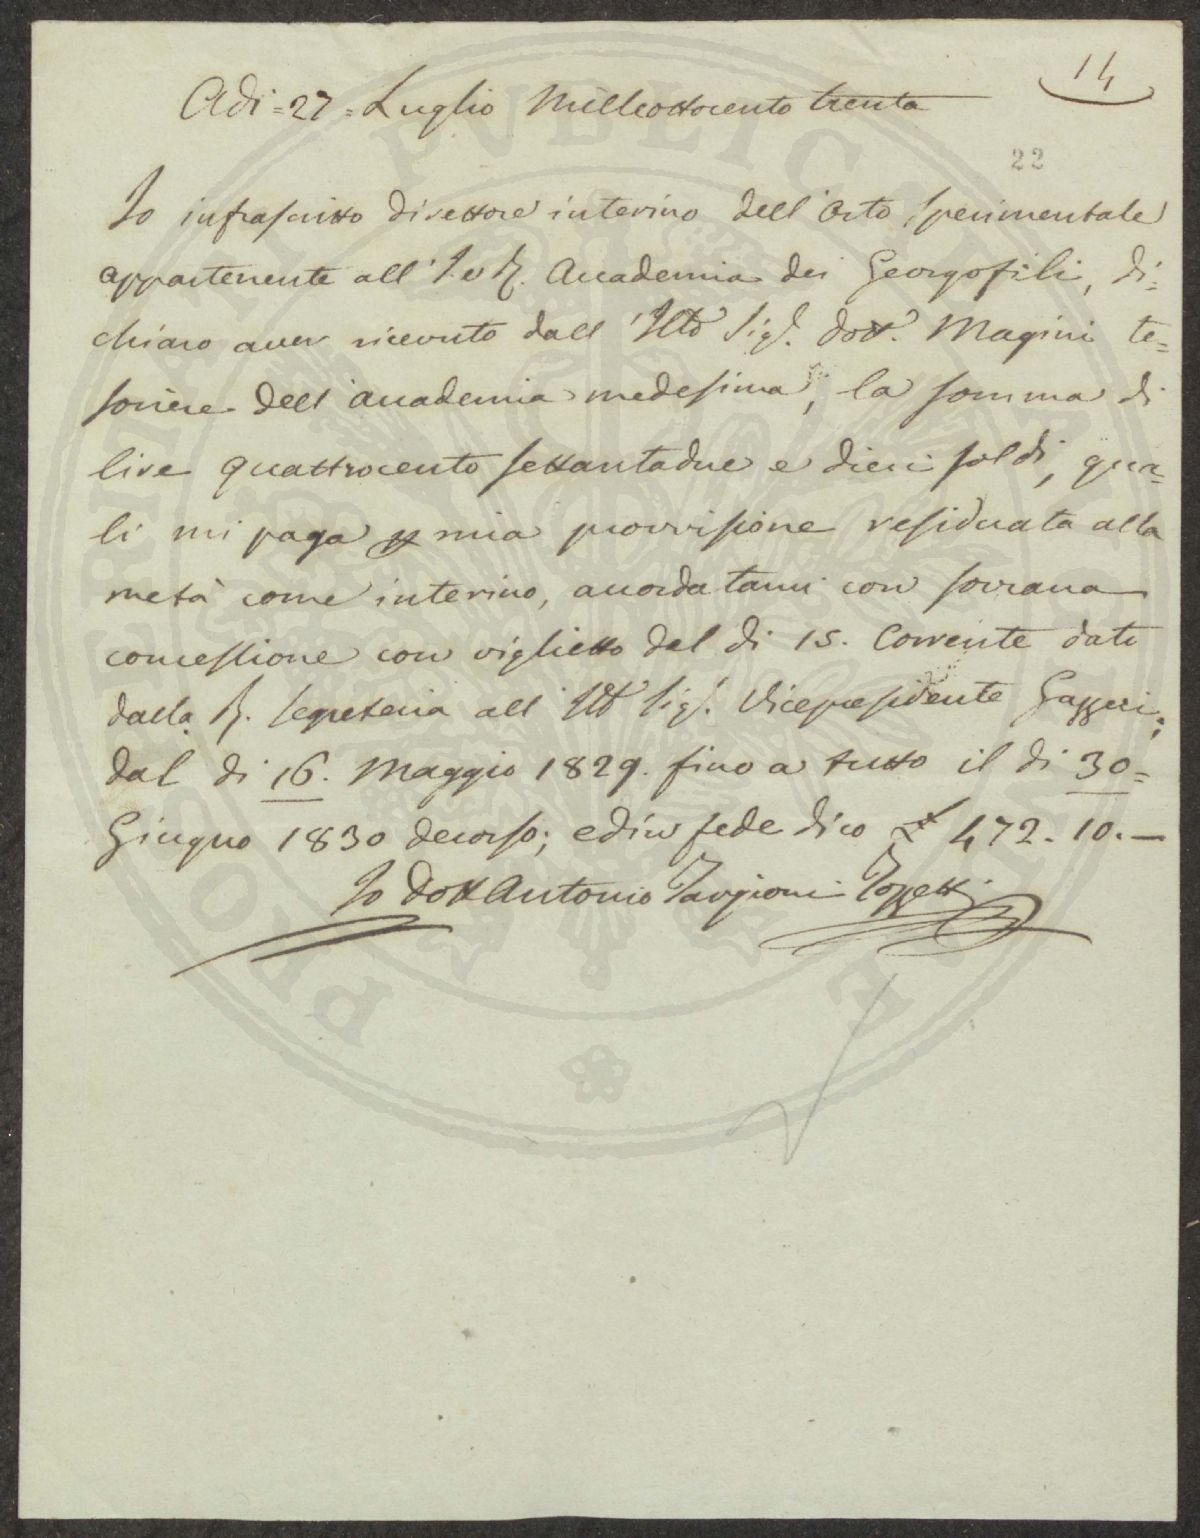 14
Adi = 27 = Luglio Milleottocento trenta
22
Io infrascritto direttore interino dell'Orto sperimentale
appartenente all'I. e R. Accademia dei Georgofili, di=
chiaro aver ricevuto dall' Illo Sigr. Dott. Magini te=
soriere dell'accademia medesima, la somma di
lire quattrocento settantadue e dieci soldi, qua=
li mi paga p mia provvisione residuata alla
metà come interino, accordatami con sovrana
concessione con viglietto del di 15. Corrente dato
dalla R. Segreteria all' Illo Sigr. Vicepresidente Gazzeri;
dal di 16. Maggio 1829. fino a tutto il di 30=
Giugno 1830 decorso; ed in fede dico £ 472. 10. —
Io Dott Antonio Targioni Tozzetti